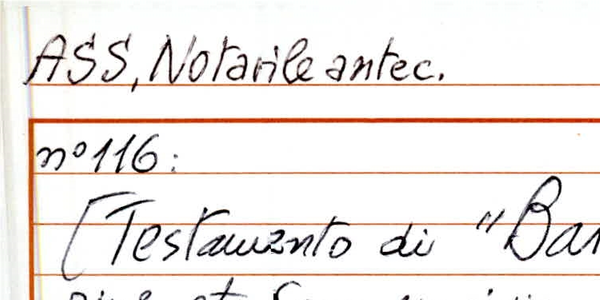 ASS, Notarile antec.
nº 116:
[Testamento di "Bar